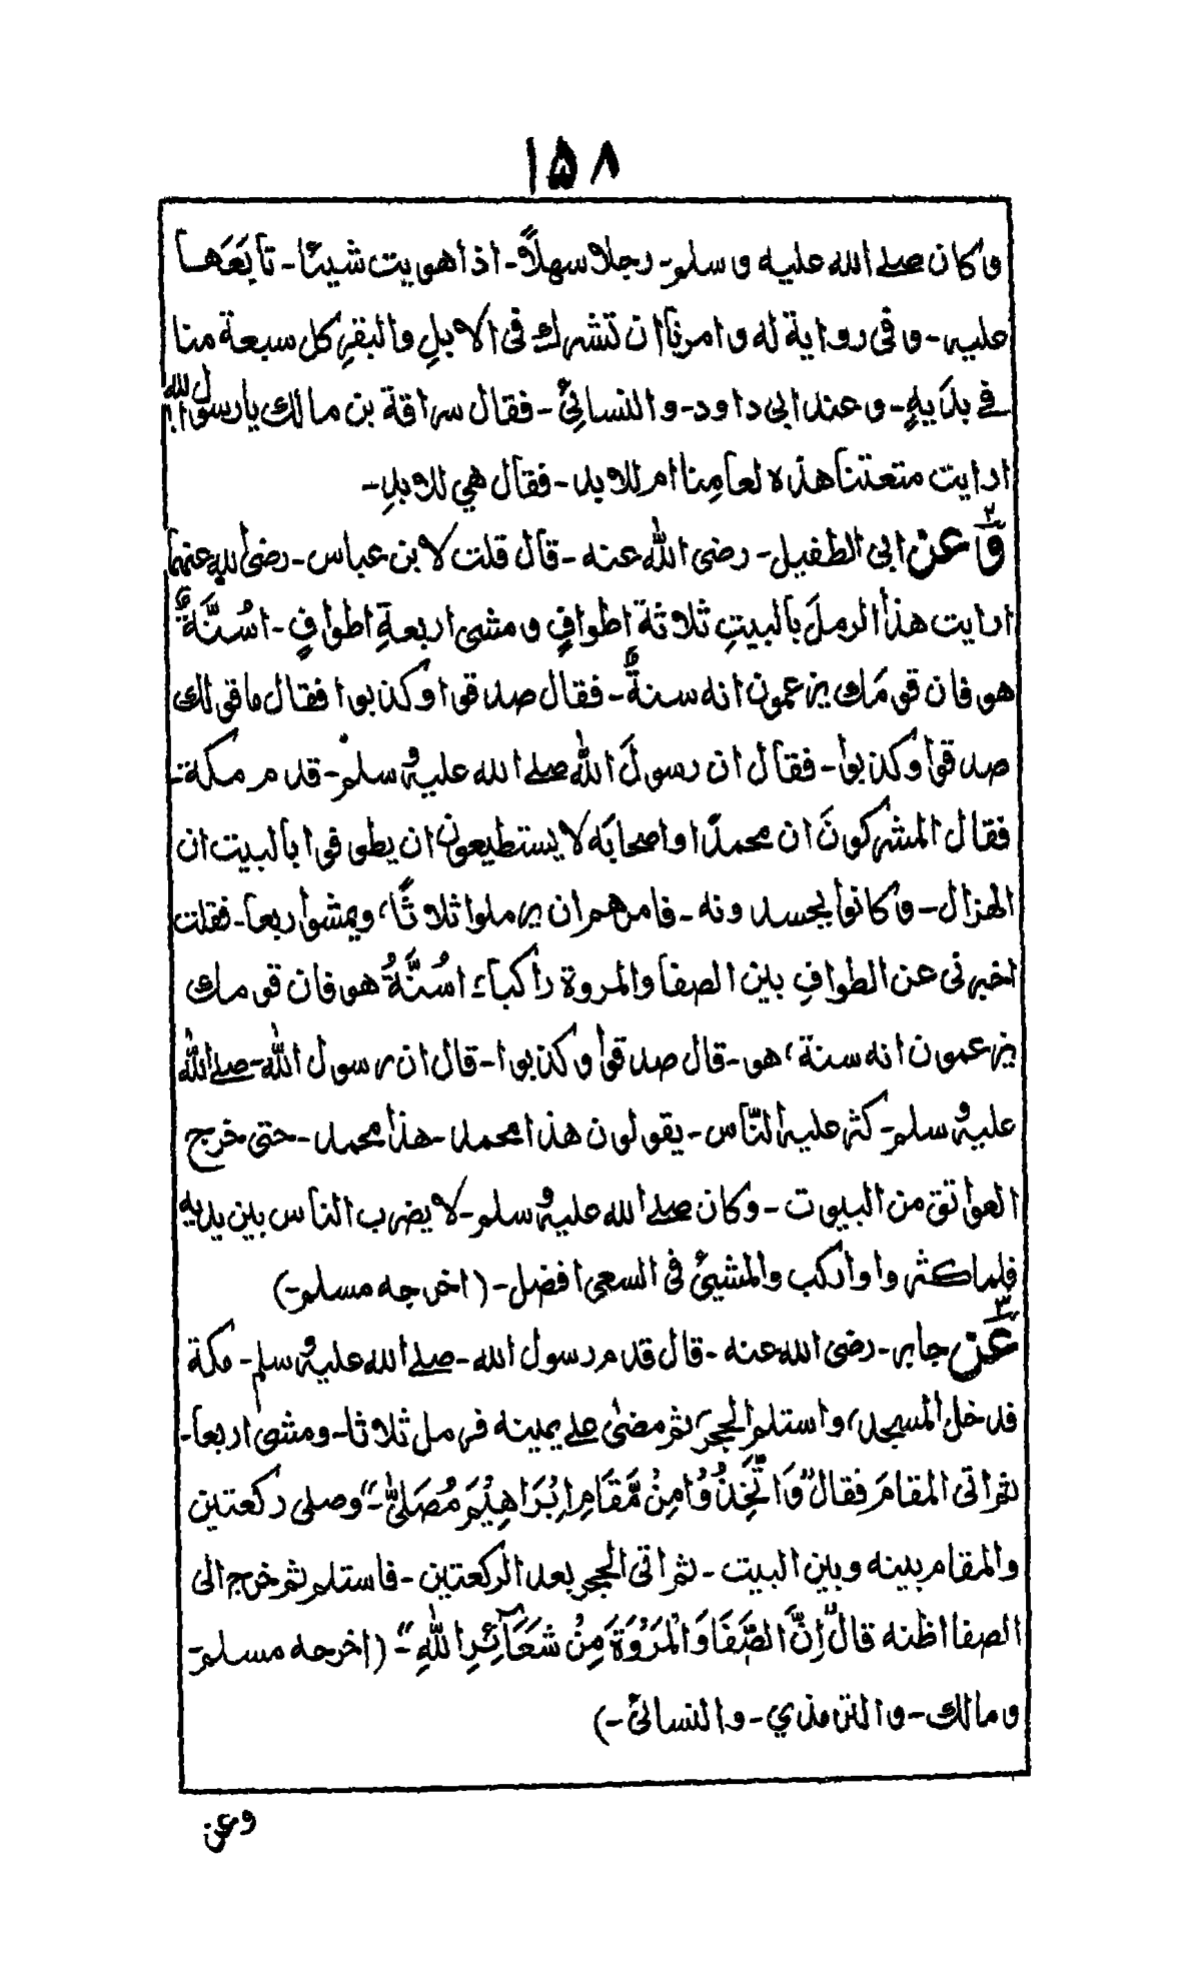 ١٥٨
وكان صلے الله عليه وسلم۔ رجلا سهلاً۔ اذا هويت شيئا۔ تابَعَها
عليه۔ وفى رواية له وامرنا ان نشترك فى الابلِ والبقرِ كل سبعة منا
فے بدَنةٍ۔ وعند ابى داود۔ والنسائىْ۔ فقال سراقة بن مالك يا رسول الله
ارايت متعتنا هذه لعامِنا ام للابد۔ فقال هي للابدِ۔
وَعن ابى الطفيل۔ رضى الله عنه۔ قال قلت لابن عباس۔ رضى الله عنهما
ارايت هذا الرملَ بالبيتِ ثلاثة اطوافٍ ومشى اربعةِ اطوافٍ۔ اسُنَّةٌ
هو فان قومَك يزعمون انه سنةٌ۔ فقال صدقوا وكذبوا فقال ما قولك
صدقوا وكذبوا۔ فقال ان رسولَ الله صلے الله عليه وسلم۔ قدم مكة۔
فقال المشركونَ ان محمدًا واصحابَه لا يستطيعون ان يطوفوا بالبيت ان
الهزال۔ وكانوا يحسدونه۔ فامرهم ان يرملوا ثلاثًا، ويمشوا ربعا۔ فقلت
اخبرنى عن الطوافِ بين الصفا والمروة راكباء اسُنَّةُ هو فان قومك
يزعمون انه سنة، هو۔ قال صدقوا وكذبوا۔ قال ان رسول الله۔ صلے الله
عليه وسلم۔ كثر عليه النّاس۔ يقولون هذا محمد۔ هذا محمد۔ حتى خرج
العواتق من البيوت۔ وكان صلے الله عليه وسلم۔ لا يضرب الناس بين يديه
فلما كثروا واركب والمشيئ فى السعى افضل۔ (اخرجه مسلم۔)
عَن جابر۔ رضى الله عنه۔ قال قدم رسول الله۔ صلے الله عليه وسلم۔ مكة
فدخل المسجد، واستلم الحجر، ثم مضىٰ علے يمينه فرمل ثلاثا۔ ومشىٰ اربعا۔
ثم اتى المقامَ فقال "وَاتَّخِذُوْا مِنْ مَّقَامِ اِبْرَاهِيْمَ مُصَلّىً۔" وصلى ركعتين
والمقام بينه وبين البيت۔ ثم اتى الحجر بعد الركعتين۔ فاستلم ثم خرج الى
الصفا اظنه قال "اِنَّ الصَّفَا وَالْمَرْوَةَ مِنْ شَعَآئِرِ اللهِ۔" (اخرجه مسلم۔
ومالك۔ والترمذي۔ والنسائىْ۔)
وعن